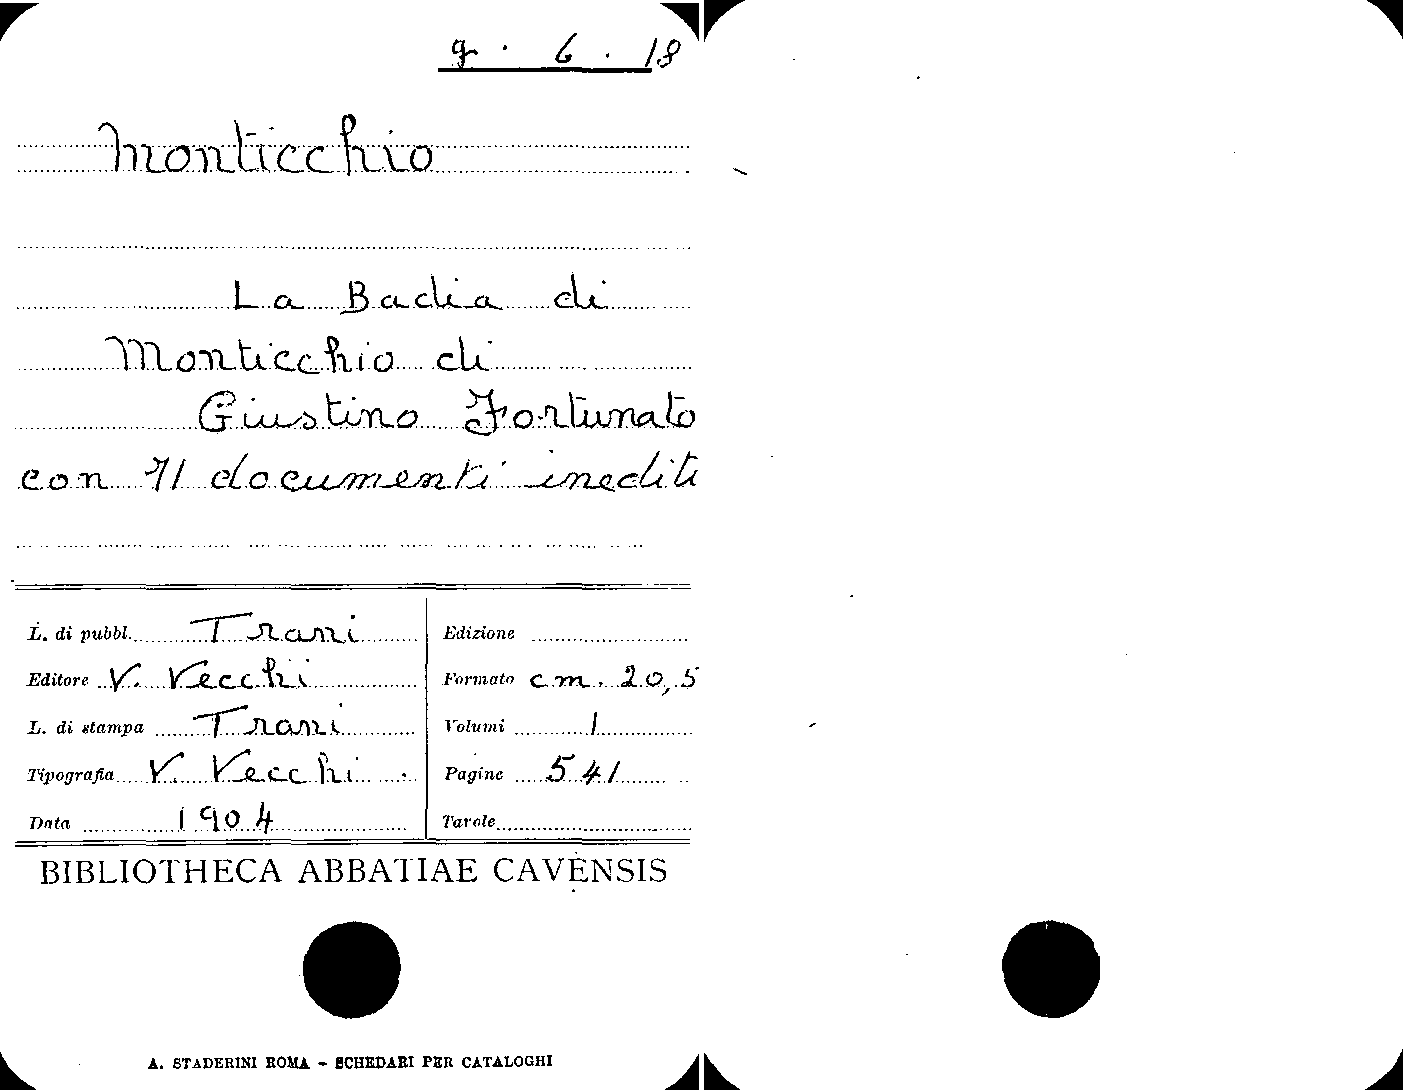 9 . 6 . 18
Monticchio
La Badia di
Monticchio di
Giustino Fortunato
con 71 documenti inediti
L. di pubbl. Trani
Editore V. Vecchi
L. di stampa Trani
Tipografia V. Vecchi
Data 1904
Edizione
Formato cm. 20,5
Volumi 1
Pagine 541
Tavole
BIBLIOTHECA ABBATIAE CAVENSIS
A. STADERINI ROMA - SCHEDARI PER CATALOGHI